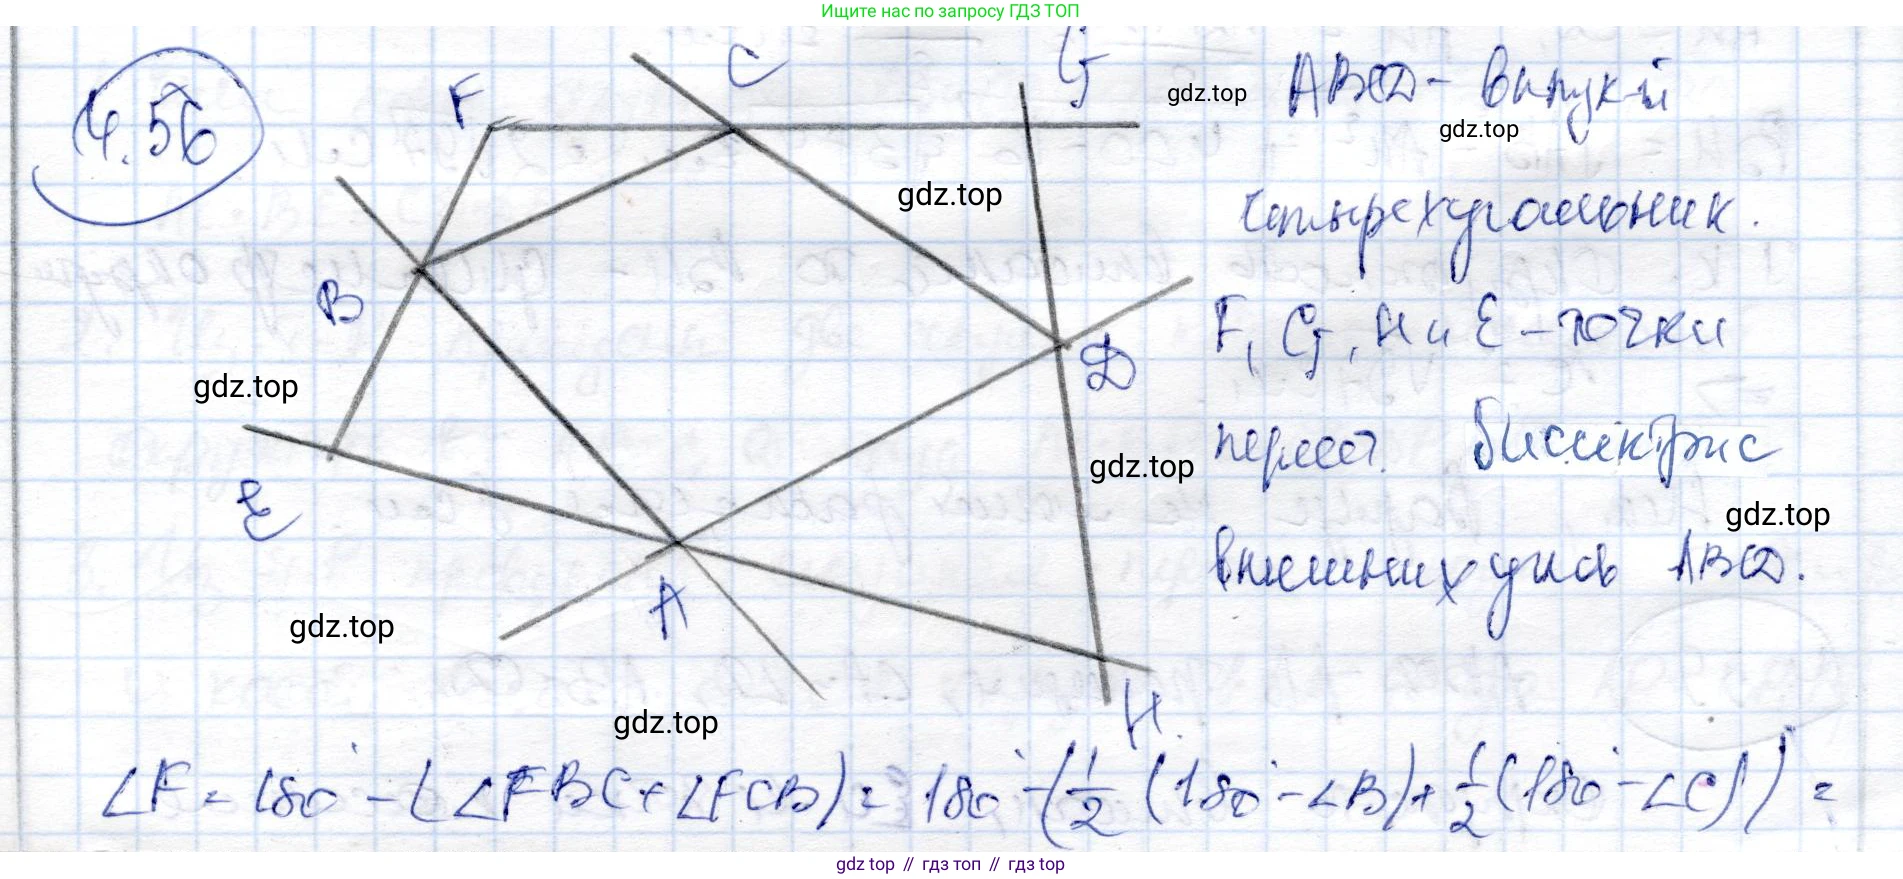 Ищите нас по запросу ГДЗ ТОП
4.56
F
C
G
gdz.top
ABCD - выпуклый
gdz.top
gdz.top
четырехугольник.
B
F, G, H и E - точки
D
gdz.top
пересеч. биссектрис
gdz.top
gdz.top
E
внешних углов ABCD.
A
gdz.top
gdz.top
H
∠F = 180° - (∠FBC + ∠FCB) = 180° - (1/2 (180° - ∠B) + 1/2 (180° - ∠C)) =
gdz top // гдз топ // гдз top